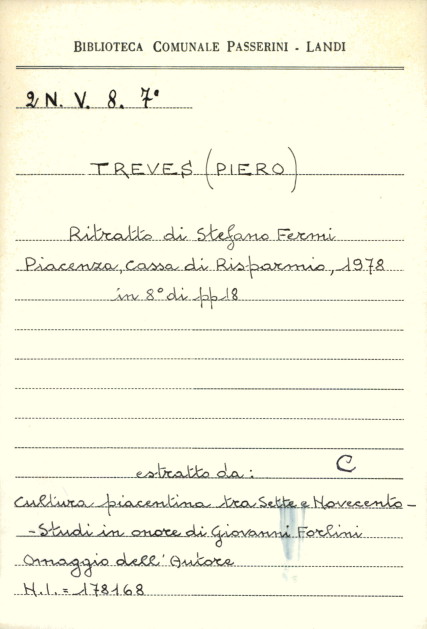 BIBLIOTECA COMUNALE PASSERINI - LANDI
2 N. V. 8. 7°
TREVES (PIERO)
Ritratto di Stefano Fermi
Piacenza, Cassa di Risparmio, 1978
in 8° di pp 18
C
estratto da:
Cultura piacentina tra Sette e Novecento -
- Studi in onore di Giovanni Forlini
Omaggio dell'Autore
N.I. = 178168